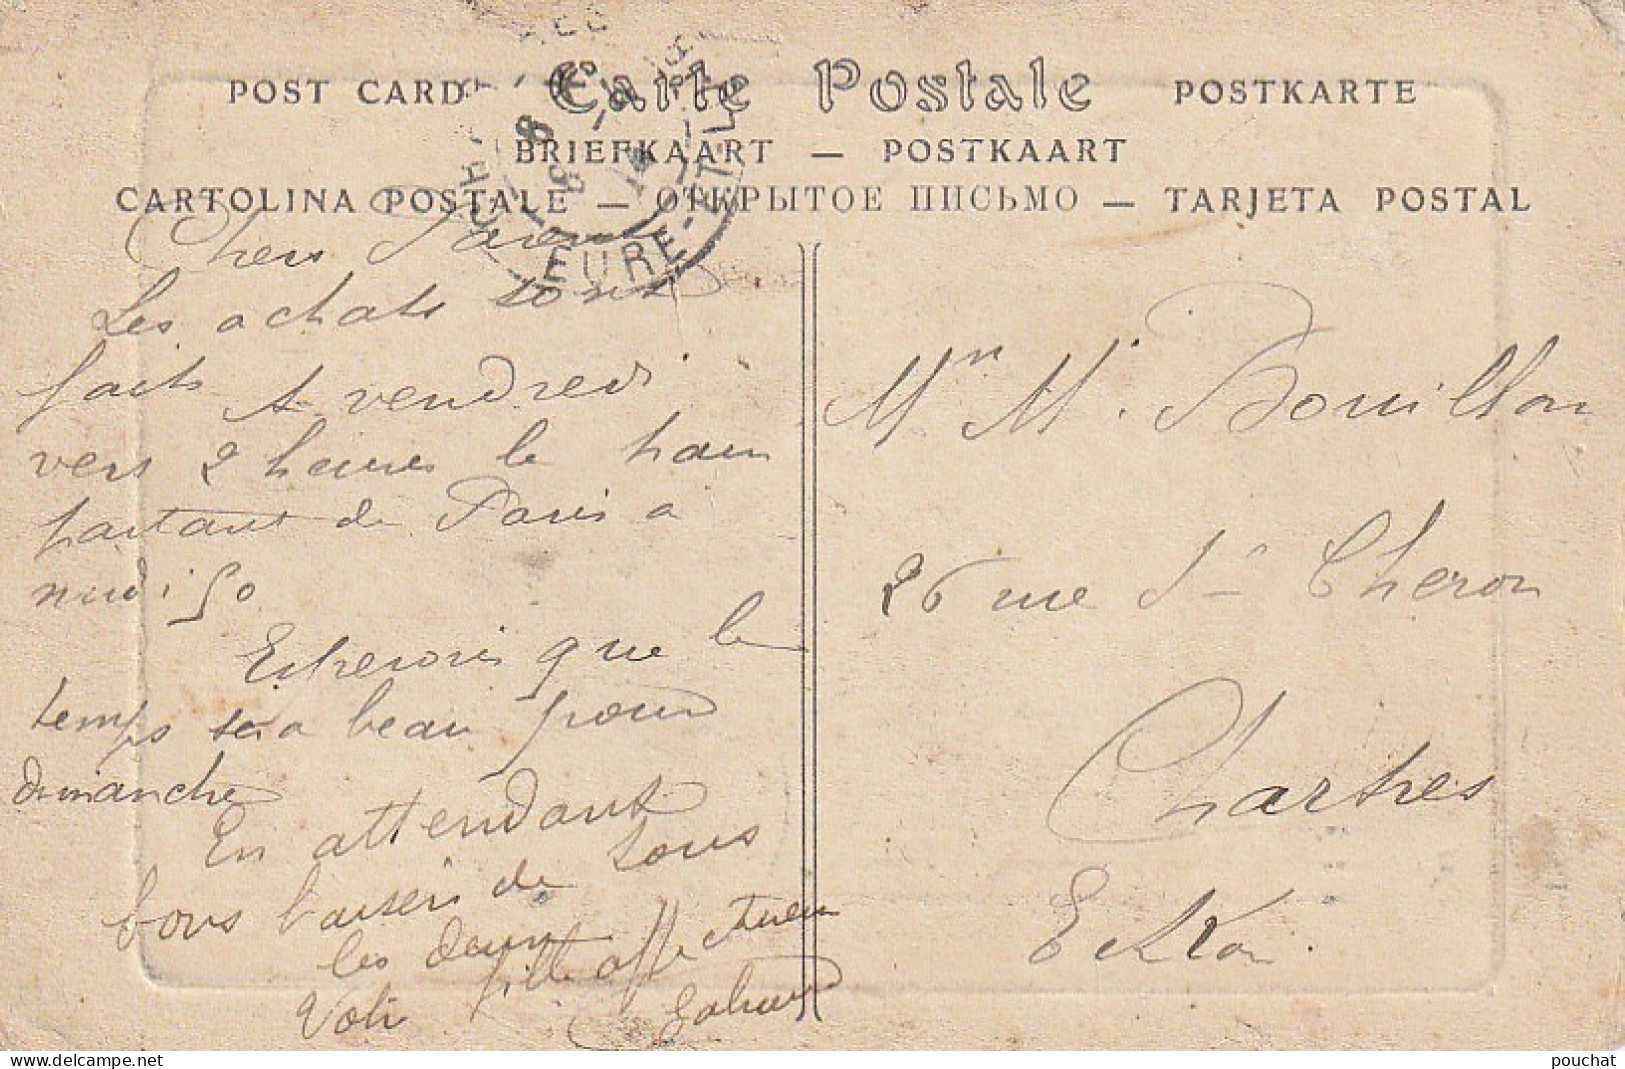 POST CARD Carte Postale POSTKARTE
BRIEFKAART — POSTKAART
CARTOLINA POSTALE — ОТКРЫТОЕ ПИСЬМО — TARJETA POSTAL
EURE-ET-L
Chers Parents
Les achats sont
faits A vendredi
vers 2 heures le train
partant de Paris a
midi 50
Esperons que le
temps sera beau pour
dimanche
En attendant
bons baisers de tous
les deux
Votre fille affectueuse
Mr M. Bouillon
26 rue St Cheron
Chartres
E et Loir.
pouchat